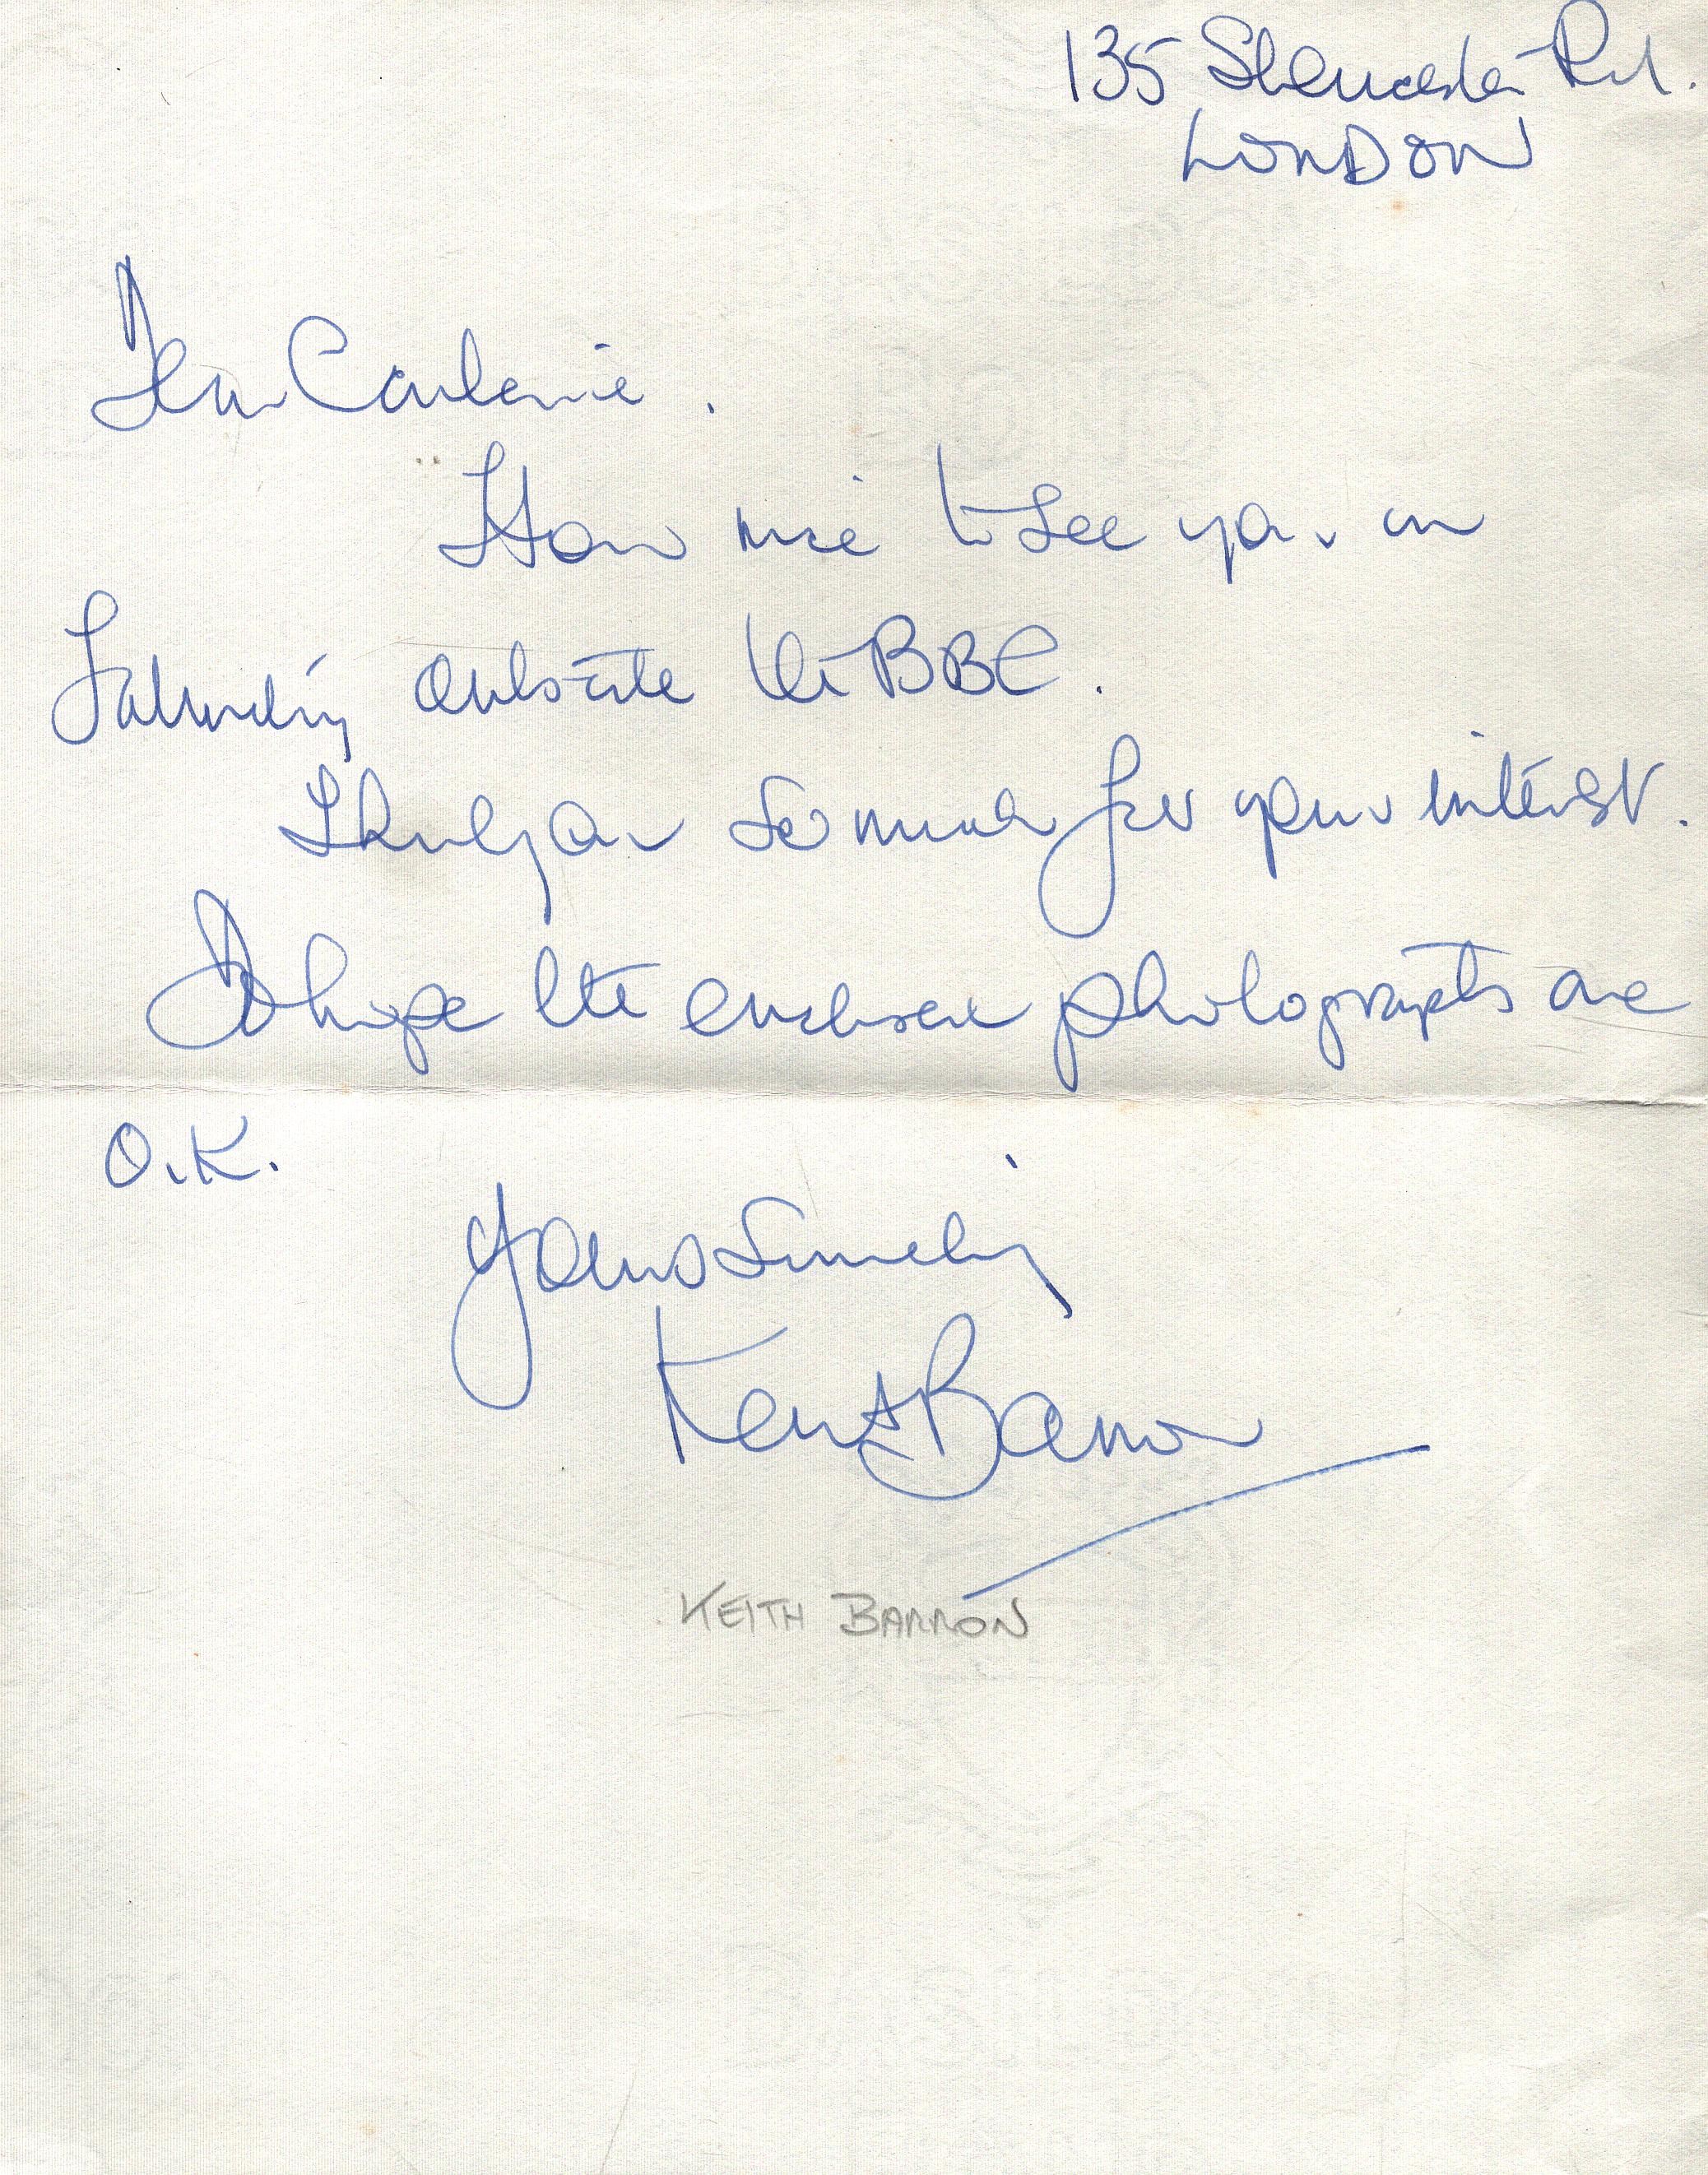 135 Gloucester Rd.
LONDON
Dear
How nice to see you on
Saturday outside the BBC.
Thank you so much for your interest.
I hope the enclosed photographs are
O.K.
Yours Sincerely
Keith Barron
KEITH BARRON